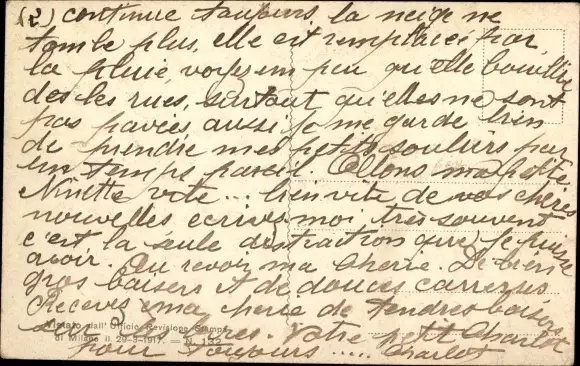 (2) continue toujours, la neige ne
tombe plus, elle est remplacée par
la pluie, voyez un peu qu'elle bouillie
des les rues, surtout qu'elles ne sont
pas pavées aussi je me garde bien
de prendre mes petits souliers par
un temps pareil. Allons ma petite
Ninette vite... bien vite de vos chères
nouvelles ecrivez moi très souvent
c'est la seule distraction que je puisse
avoir. Au revoir ma cherie. De bien
gros baisers et de douces carresses
Recevez ma cherie de tendres baisers
sur lèvres. Votre petit Charlot
pour toujours ..... Charlot
Visiato dall' Officio Revisione Stampa
di Milano il 29-3-1917. — N. 132